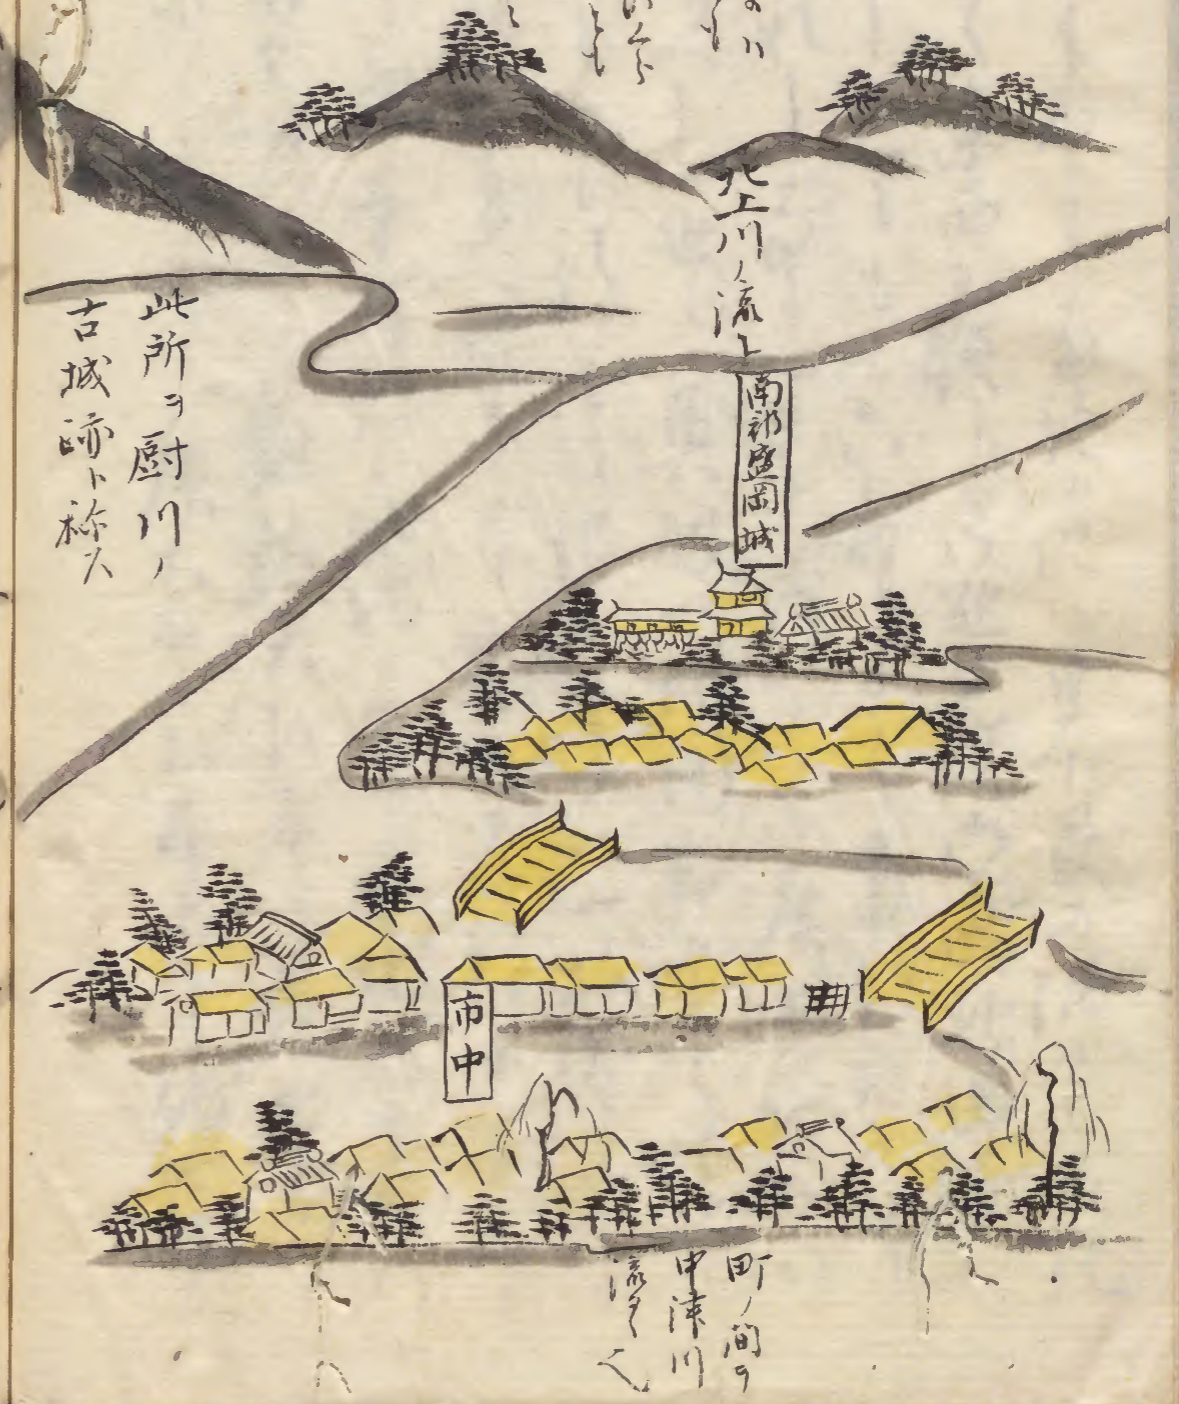 北上川ノ流レ
南部盛岡城
此所ヲ厨川ノ
古城跡ト称ス
市中
町ノ間ヲ
中津川
流ルヽ